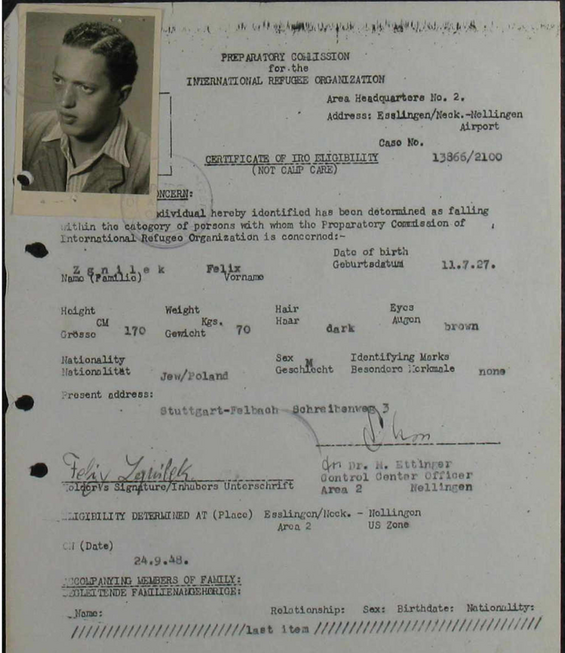 PREPARATORY COMMISSION
for the
INTERNATIONAL REFUGEE ORGANIZATION
Area Headquarters No. 2.
Address: Esslingen/Neck.-Nellingen
Airport
Case No.
CERTIFICATE OF IRO ELIGIBILITY 13866/2100
(NOT CAMP CARE)
CONCERN:
individual hereby identified has been determined as falling
within the category of persons with whom the Preparatory Commission of
International Refugee Organization is concerned:-
Date of birth
Geburtsdatum 11.7.27.
Z g n i l e k Felix
Name (Familie) Vorname
Height Weight Hair Eyes
CM Kgs. Haar Augen
Grösse 170 Gewicht 70 dark brown
Nationality Sex M Identifying Marks
Nationalität Jew/Poland Geschlecht Besondere Merkmale none
Present address:
Stuttgart-Felbach Schreibenweg 3
Felix Zgnilek
Holder's Signature/Inhabers Unterschrift
Dr. M. Ettinger
Control Center Officer
Area 2 Nellingen
ELIGIBILITY DETERMINED AT (Place) Esslingen/Neck. - Nellingen
Area 2 US Zone
ON (Date)
24.9.48.
ACCOMPANYING MEMBERS OF FAMILY:
BEGLEITENDE FAMILIENANGEHÖRIGE:
Name: Relationship: Sex: Birthdate: Nationality:
////////////////////////last item////////////////////////